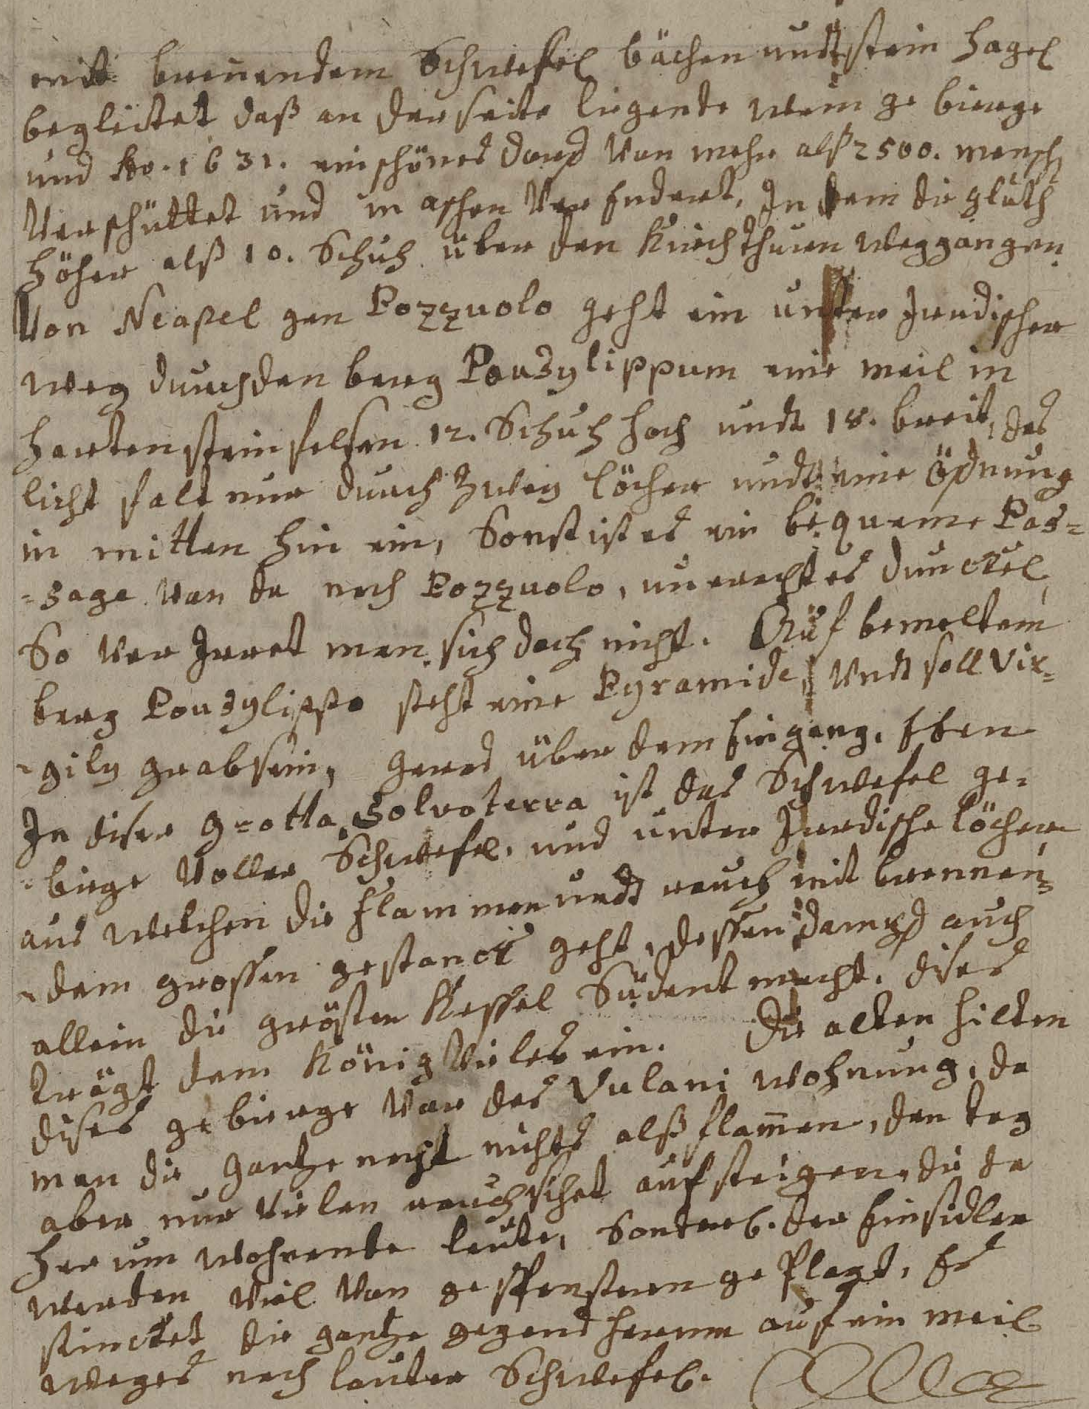 mit brennendem Schwefel bächen undt stein hagel
begleitet daß an der seite liegente wein ge bierge
und Ao. 1631. ein schönes dorf von mehr alß 2500. mensch
verschüttet und in aschen ver Endert, In dem die gluth
höher alß 10. Schuh über den Kirch thurn weggangen.
Von Neapel gen Pozzuolo geht ein unter Irrdischer
weg durch den berg Pousylippum eine meil in
harten stein felsen 12. Schuh hoch undt 18. breit, das
licht falt nur durch zwey löcher undt eine öfnung
in mitten hin ein, Sonst ist es ein bequeme Pas=
=sage von da nach Pozzuolo, unerachtet es dunckel
So ver Irret man sich doch nicht. Auf bemeltem
berg Pousylippo steht eine Pyramide, Undt soll Vir=
=gily grab sein, gerad über dem Eingang. Eben
In diser Grotta Solvoterra ist das Schwefel ge=
=birge voller Schwefel. und unter Irrdische löcher
aus welchen die flammen undt rauch mit brennen=
=dem grossen gestanck geht, dessen dampf auch
allein die grösten Kessel Südent macht. dises
trägt dem König vieles ein. Die alten hilten
dises gebierge vor des Vulani wohnung, da
man die gantze nacht nichts alß flamen, den tag
aber nur vielen rauch sihet aufsteigen, die da
herum wohnente leute, Sonderl. der Einsidler
werden viel von gespenstern ge Plagt, Es
stincket die gantze gegend herum auf ein meil
weges nach lauter Schwefel.